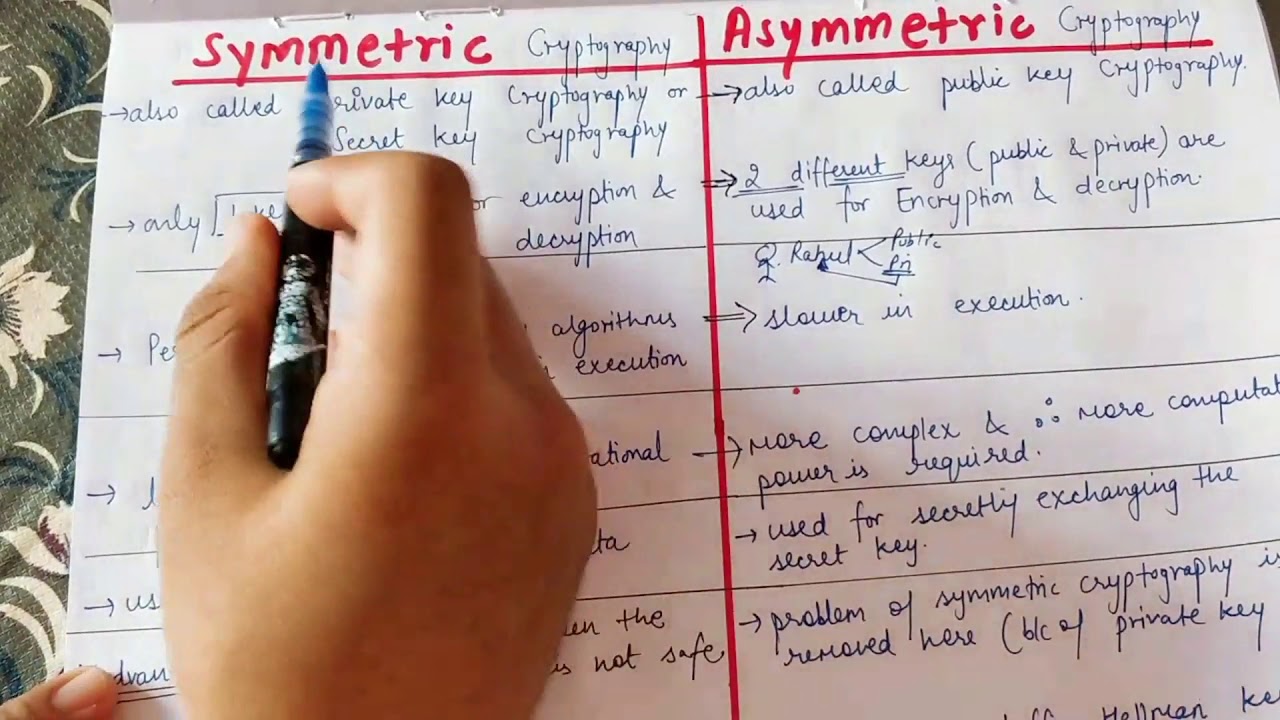 Symmetric Cryptography
→also called private key Cryptography or
Secret key Cryptography
→ only 1 key for encryption &
decryption
→ algorithms
execution
→ ational
→ us
en the
is not safe
Asymmetric Cryptography
→also called public key Cryptography.
⇒ 2 different keys (public & private) are
used for Encryption & decryption.
Rahul Public
Pri
⇒ slower in execution.
→ More complex & ∴ More computat
power is required.
→ used for secretly exchanging the
secret key.
→ problem of symmetric cryptography is
removed here (b/c of private key
Hellman ke